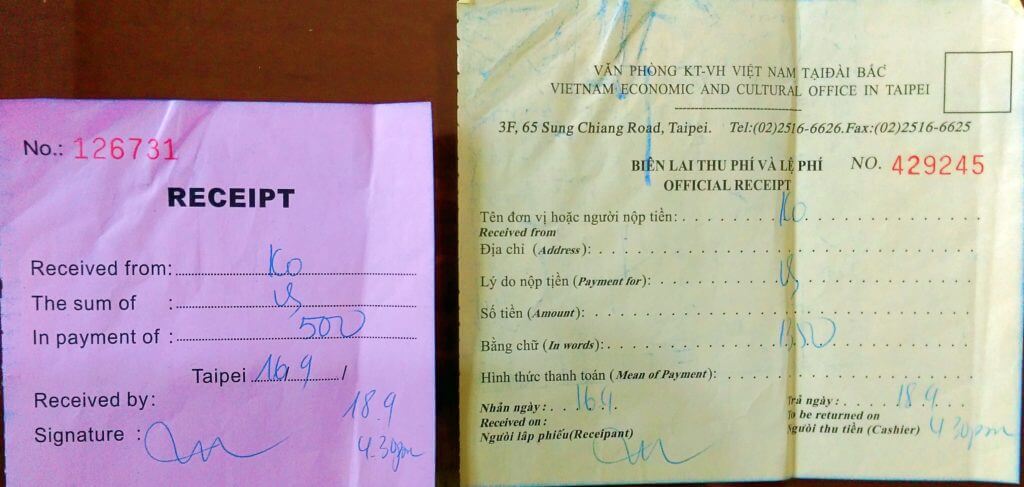 No.: 126731
RECEIPT
Received from: Ko
The sum of : VS
In payment of : 500
Taipei 16.9 /
Received by:
18 9
Signature :
4.30pm
VĂN PHÒNG KT-VH VIỆT NAM TẠIĐÀI BẮC
VIETNAM ECONOMIC AND CULTURAL OFFICE IN TAIPEI
3F, 65 Sung Chiang Road, Taipei. Tel:(02)2516-6626.Fax:(02)2516-6625
BIÊN LAI THU PHÍ VÀ LỆ PHÍ NO. 429245
OFFICIAL RECEIPT
Tên đơn vị hoặc người nộp tiền: Ko
Received from
Địa chỉ (Address):
Lý do nộp tiền (Payment for): VS
Số tiền (Amount):
Bằng chữ (In words):
Hình thức thanh toán (Mean of Payment):
Nhân ngày: 16 9 Trả ngày: 18 9
Received on: To be returned on
Người lập phiếu(Receipant) Người thu tiền (Cashier) 4 30pm